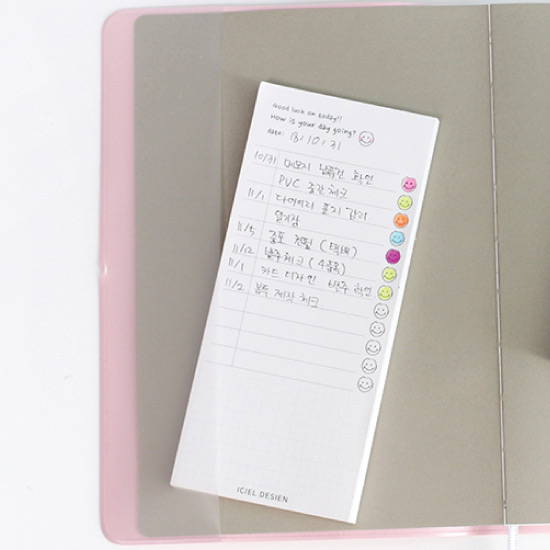 Good luck on today!!
How is your day going?
date: 18.10.31
10/31 메모지 납품건 확인
PVC 중간체크
11/1 다이어리 품지 감리
열지창
11/5 출고 전달 (택배)
11/12 발주체크 (4품목)
11/1 카드 디자인 발주 확인
11/2 봉투 제작 체크
ICIEL DESIEN